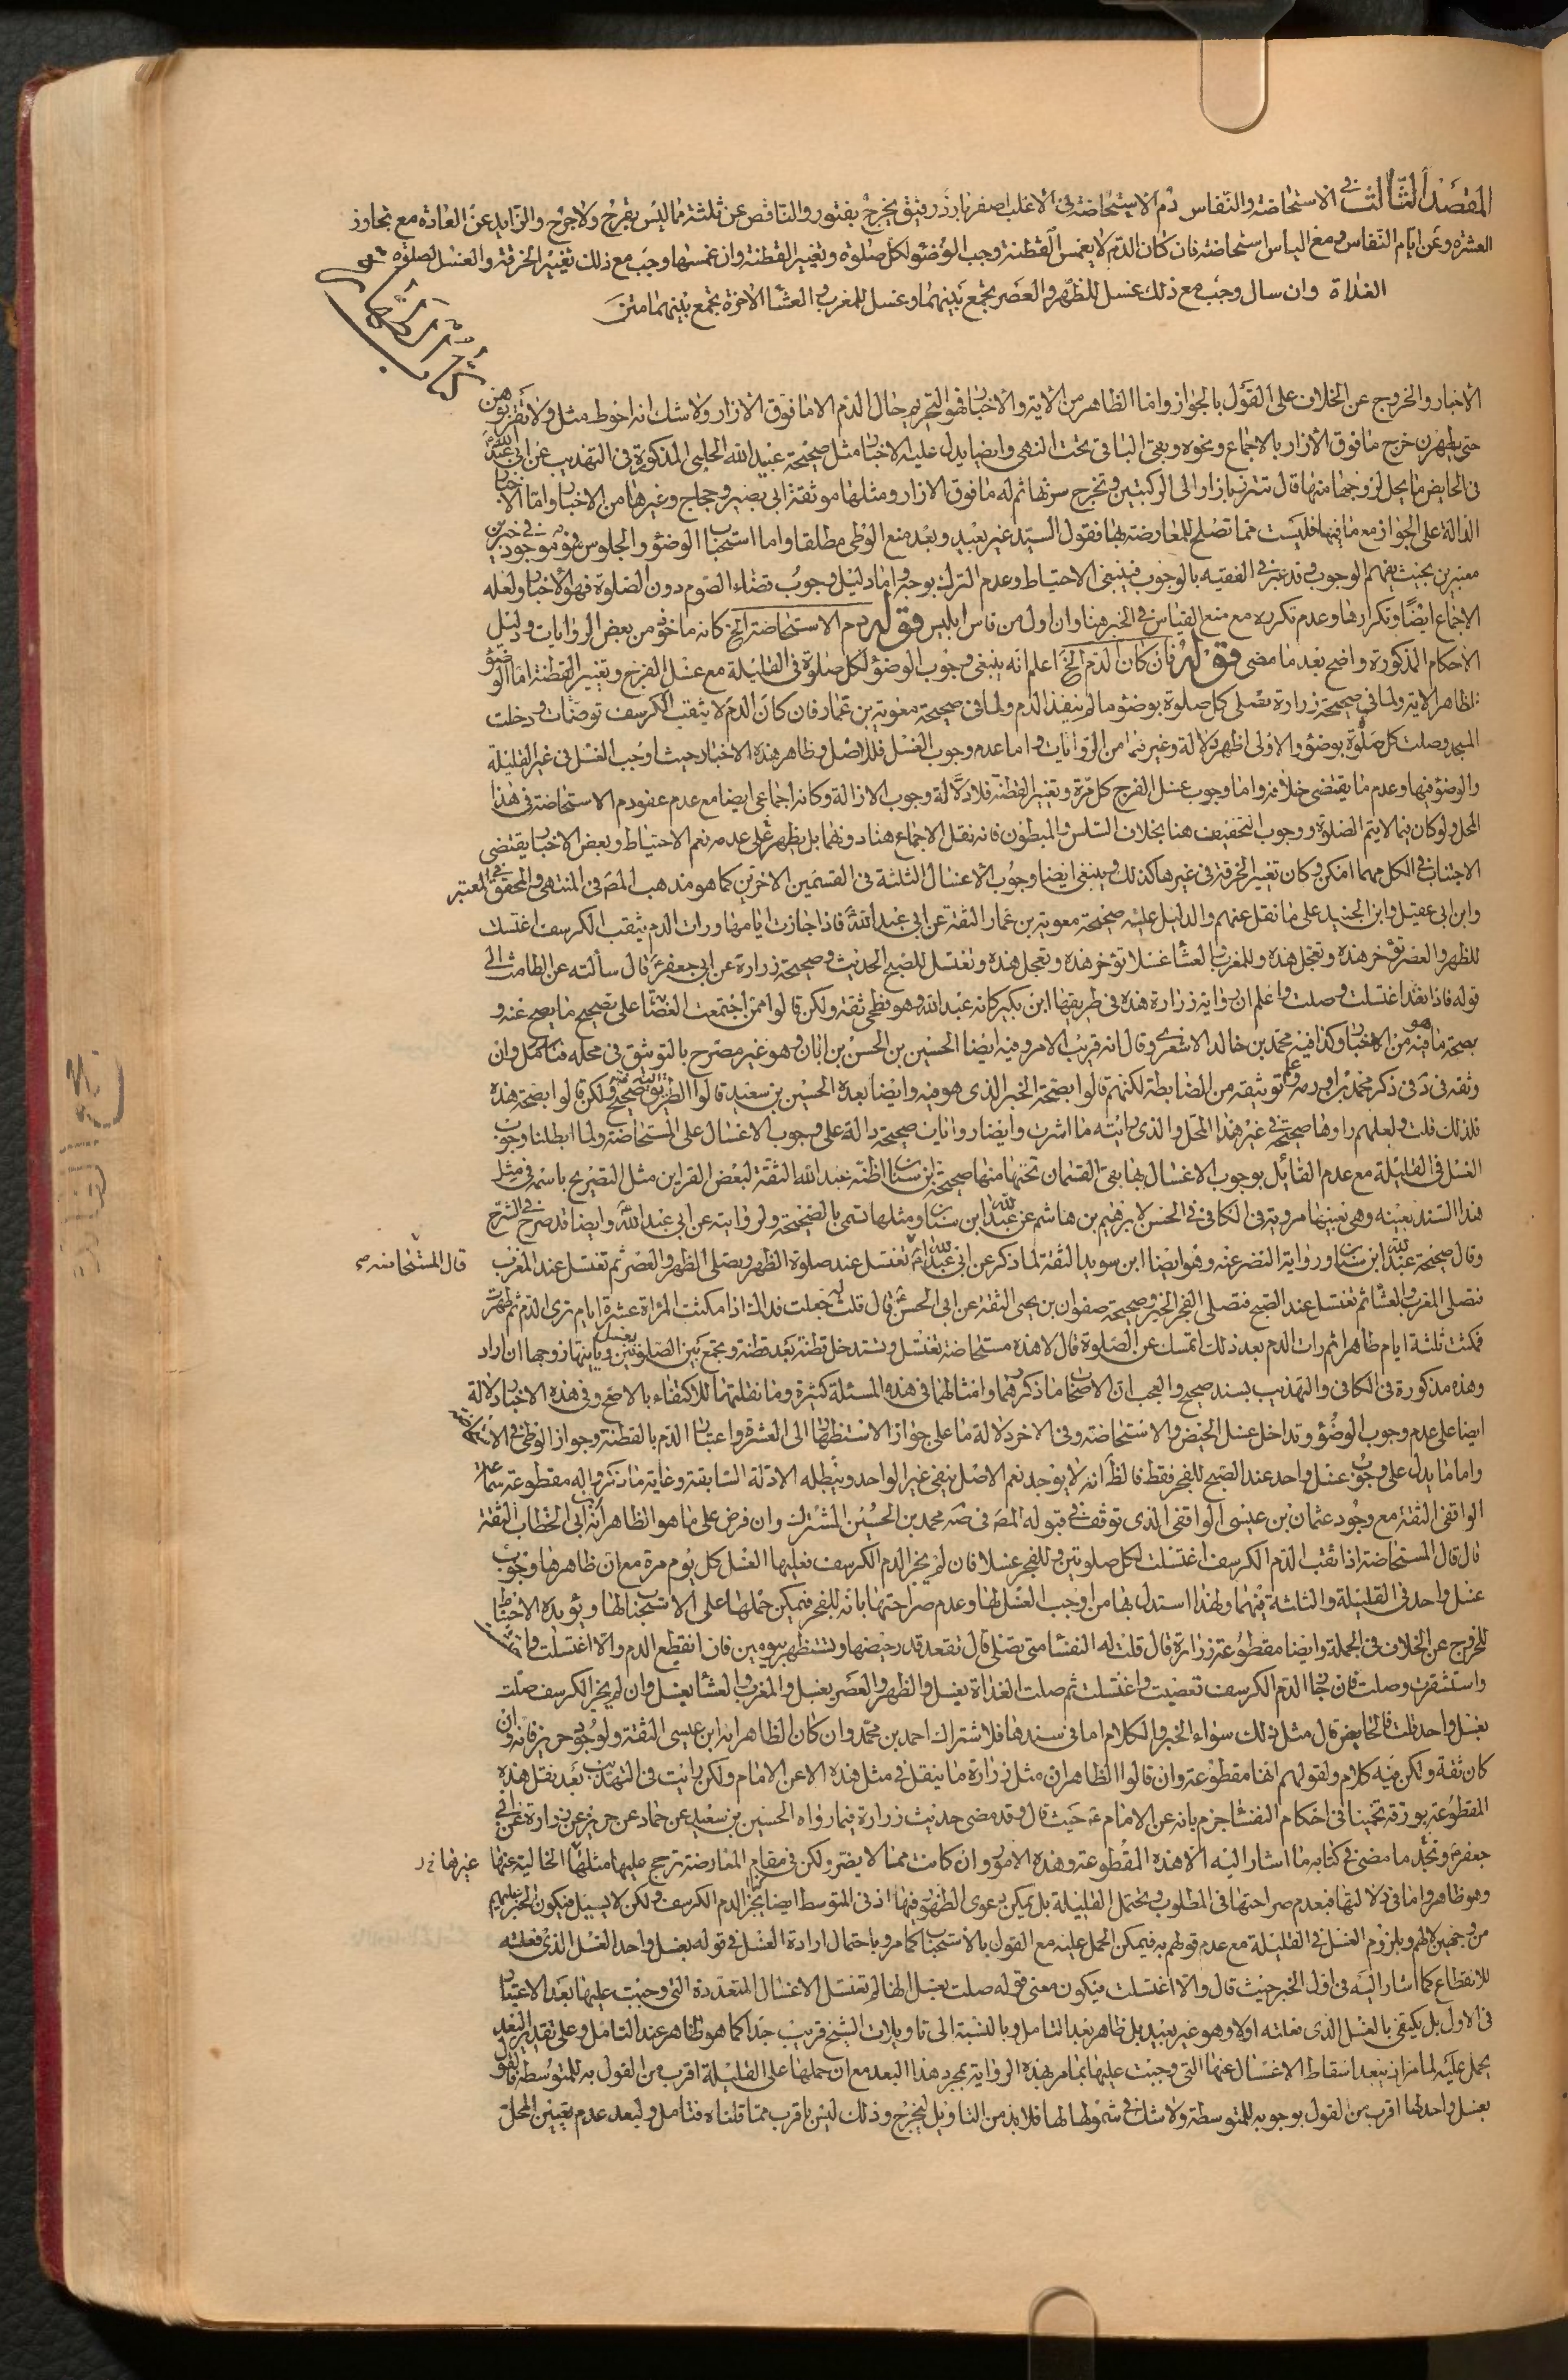 المقصد الثالث في الاستحاضة والنفاس دم الاستحاضة في الاغلب اصفر بارد رقيق يخرج بفتور والناقص عن ثلثة مما ليس بقرح ولا جرح والزايد عن العادة مع تجاوز
العشرة وعن ايام النفاس ومع الياس استحاضة فان كان الدم لا يغمس القطنة وجب الوضوء لكل صلوة وتغيير القطنة وان غمسها وجب مع ذلك تغيير الخرقة والغسل لصلوة
الغداة وان سال وجب مع ذلك غسل للظهر والعصر تجمع بينهما وغسل للمغرب والعشا الاخرة تجمع بينهما
كتاب الطهارة
الاخبار والخروج عن الخلاف على القول بالجواز واما الظاهر من الاية والاخبار فهو التحريم حال الدم الا ما فوق الازار ولا شك انه احوط مثل ولا تقربوهن
حتى يطهرن خرج ما فوق الازار بالاجماع ونحوه وبقى الباقى تحت النهى وايضا يدل عليه الاخبار مثل صحيحة عبيد الله الحلبى المذكورة فى التهذيب عن ابى عبد الله
فى الحايض ما يحل لزوجها منها قال تتزر بازار الى الركبتين وتخرج سرتها ثم له ما فوق الازار ومثلها موثقة ابى بصير وحجاج وغيرها من الاخبار واما الاخبار
الدالة على الجواز مع ما فيها فليست مما تصلح للمعارضة بها فقول السيد غير بعيد وبعد منع الوطى مطلقا واما استحباب الوضوء والجلوس فهو موجود فى خبرين
معتبرين بحيث يفهم الوجوب وقد عبر فى الفقيه بالوجوب فينبغى الاحتياط وعدم الترك بوجه واما دليل وجوب قضاء الصوم دون الصلوة فهو الاخبار ولعله
الاجماع ايضا وتكرارها وعدم تكرره مع منع القياس فى الخبر هنا وان اول من قاس ابليس قوله دم الاستحاضة الخ كانه ماخوذ من بعض الروايات ودليل
الاحكام المذكورة واضح بعد ما مضى قوله فان كان الدم الخ اعلم انه ينبغى وجوب الوضوء لكل صلوة فى القليلة مع غسل الفرج وتغيير القطنة اما الوضوء
فلظاهر الاية ولما فى صحيحة زرارة تصلى كل صلوة بوضوء ما لم ينفذ الدم ولما فى صحيحة معوية بن عمار فان كان الدم لا يثقب الكرسف توضات ودخلت
المسجد وصلت كل صلوة بوضوء والاولى اظهر دلالة وغيرهما من الروايات واما عدم وجوب الغسل فللاصل وظاهر هذه الاخبار حيث اوجب الغسل فى غير القليلة
والوضوء فيها وعدم ما يقتضى خلافه واما وجوب غسل الفرج كل مرة وتغيير القطنة فلادلة وجوب الازالة وكانه اجماعى ايضا مع عدم عفو دم الاستحاضة فى هذا
المحل ولو كان فيما لا يتم الصلوة ووجوب التخفيف هنا بخلاف السلس والمبطون فانه نقل الاجماع هنا دونهما بل يظهر على عدمه نعم الاحتياط وبعض الاخبار يقتضى
الاجتناب فى الكل مهما امكن وكان تغيير الخرقة فى غيرها كذلك وينبغى ايضا وجوب الاغسال الثلثة فى القسمين الاخرين كما هو مذهب المص فى المنتهى والمحقق فى المعتبر
وابن ابى عقيل وابن الجنيد على ما نقل عنهم والدليل عليه صحيحة معوية بن عمار الثقة عن ابى عبد الله فاذا جازت ايامها ورات الدم يثقب الكرسف اغتسلت
للظهر والعصر تؤخر هذه وتعجل هذه وللمغرب والعشا غسلا تؤخر هذه وتعجل هذه وتغتسل للصبح الحديث وصحيحة زرارة عن ابى جعفر قال سألته عن الطامث الى
قوله فاذا نفذ اغتسلت وصلت واعلم ان رواية زرارة هذه فى طريقها ابن بكير كانه عبد الله وهو فطحى ثقة ولكن قالوا ممن اجتمعت العصابة على تصحيح ما يصح عنه و
بصحة ما هو فيه من الاخبار وكذا فيه محمد بن خالد الاشعرى وقال انه قريب الامر وفيه ايضا الحسين بن الحسن بن ابان وهو غير مصرح بالتوثيق فى محله فتامل وان
وثقه فى د فى ذكر محمد بن اورمه وعلم توثيقه من الضابطة لكنهم قالوا بصحة الخبر الذى هو فيه وايضا بعده الحسين بن سعيد قالوا الطريق اليه صحيح ولكن قالوا بصحة هذه
فلذلك قلت ولعلهم راوها صحيحة فى غير هذا المحل والذى رايته ما اشرت وايضا روايات صحيحة دالة على وجوب الاغسال على المستحاضة ولما ابطلنا وجوب
الغسل فى القليلة مع عدم القائل بوجوب الاغسال بها بقى القسمان تحتها منها صحيحة ابن سنان اظنه عبد الله الثقة لبعض القراين مثل التصريح باسمه فى مثل
هذا السند بعينه وهى بعينها مروية فى الكافى فى الحسن لابرهيم بن هاشم عن عبد الله ابن سنان ومثلها تسمى بالصحيحة ولروايته عن ابى عبد الله وايضا قد صرح فى الشرح
وقال صحيحة عبد الله ابن سنان ورواية النضر عنه وهو ايضا ابن سويد الثقة لما ذكر عن ابى عبد الله تغتسل عند صلوة الظهر وتصلى الظهر والعصر ثم تغتسل عند المغرب
قال المستحاضة صح
فتصلى المغرب والعشا ثم تغتسل عند الصبح فتصلى الفجر الخبر وصحيحة صفوان بن يحيى الثقة عن ابى الحسن قال قلت له جعلت فداك اذا مكثت المراة عشرة ايام ترى الدم ثم طهرت
فمكثت ثلثة ايام طاهرا ثم رات الدم بعد ذلك اتمسك عن الصلوة قال لا هذه مستحاضة تغتسل وتستدخل قطنة بعد قطنة وتجمع بين الصلوتين بغسل وياتيها زوجها ان اراد
وهذه مذكورة فى الكافى والتهذيب بسند صحيح والعجب ان الاصحاب ما ذكروهما وامثالهما فى هذه المسئلة كثيرة وما نقلتهما للاكتفاء بالاصح وفى هذه الاخبار دلالة
ايضا على عدم وجوب الوضوء وتداخل غسل الحيض والاستحاضة وفى الاخر دلالة ما على جواز الاستظهار الى العشرة واعتبار الدم بالقطنة وجواز الوطى
واما ما يدل على وجوب غسل واحد عند الصبح للفجر فقط فالظ انه لا يوجد نعم الاصل ينفى غير الواحد ويبطله الادلة السابقة وغاية ما ذكروا له مقطوعة سماعة
الواقفى الثقة مع وجود عثمان بن عيسى الواقفى الذى توقف فى قبوله المص فى صه محمد بن الحسين المشترك وان فرض على ما هو الظاهر انه ابن ابى الخطاب الثقة
قال قال المستحاضة اذا ثقب الدم الكرسف اغتسلت لكل صلوتين وللفجر غسلا فان لم يجز الدم الكرسف فعليها الغسل كل يوم مرة مع ان ظاهرها وجوب
غسل واحد فى القليلة والثلثة فيهما ولهذا استدل بها من اوجب الغسل لها وعدم صراحتها بانه للفجر فيمكن حملها على الاستحباب لها ويؤيده الاحتياط
للخروج عن الخلاف فى الجملة وايضا مقطوعة زرارة قال قلت له النفسا متى تصلى قال تقعد قدر حيضها وتستظهر بيومين فان انقطع الدم والا اغتسلت واحتشت
واستثفرت وصلت فان جاز الدم الكرسف تعصبت واغتسلت ثم صلت الغداة بغسل والظهر والعصر بغسل والمغرب والعشا بغسل وان لم يجز الكرسف صلت
بغسل واحد قلت فالحايض قال مثل ذلك سواء الخبر والكلام اما فى سندها فلاشتراك احمد بن محمد وان كان الظاهر انه ابن عيسى الثقة ولوجود حريز فانه وان
كان ثقة ولكن فيه كلام ولقولهم انها مقطوعة وان قالوا الظاهر ان مثل زرارة ما ينقل فى مثل هذه الا عن الامام ولكن رايت فى التهذيب بعد نقل هذه
المقطوعة بورقة تخمينا فى احكام النفسا جزم بانه عن الامام حيث قال وقد مضى حديث زرارة فيما رواه الحسين بن سعيد عن حماد عن حريز عن زرارة عن ابى
جعفر ونجد ما مضى فى كتابه ما اشار اليه الا هذه المقطوعة وهذه الامور وان كانت مما لا يضر ولكن فى مقام المعارضة ترجح عليها مثلها الخالية عنها
غيرها خ ر
وهو ظاهر واما فى دلالتها فبعدم صراحتها فى المطلوب ويحتمل القليلة بل يمكن دعوى الظهور فيها اذ فى المتوسط ايضا يجز الدم الكرسف ولكن لا يسيل فيكون الخبر عليهم
من وجهين لا لهم ويلزوم الغسل فى القليلة مع عدم قولهم به فيمكن الحمل عليه مع القول بالاستحباب كما مر وباحتمال ارادة الغسل فى قوله بغسل واحد الغسل الذى فعلته
للانقطاع كما اشار اليه فى اول الخبر حيث قال والا اغتسلت فيكون معنى قوله صلت بغسل انها لم تغتسل الاغسال المتعددة التى وجبت عليها بعد الاعتبار
فى الاول بل يكتفى بالغسل الذى فعلته اولا وهو غير بعيد بل ظاهر بعد التامل وبالنسبة الى تاويلات الشيخ قريب جدا كما هو ظاهر عند التامل وعلى تقدير البعد
يحمل عليه لما مر اذ يبعد اسقاط الاغسال عنها التى وجبت عليها بما مر بهذه الرواية بمجرد هذا البعد مع ان حملها على القليلة اقرب من القول به للمتوسطة فالقول
بغسل واحد لها اقرب من القول بوجوبه للمتوسطة ولا شك فى شمولها لها فلا بد من التاويل ليخرج وذلك ليس باقرب مما قلناه فتامل وليعد عدم تعيين المحل